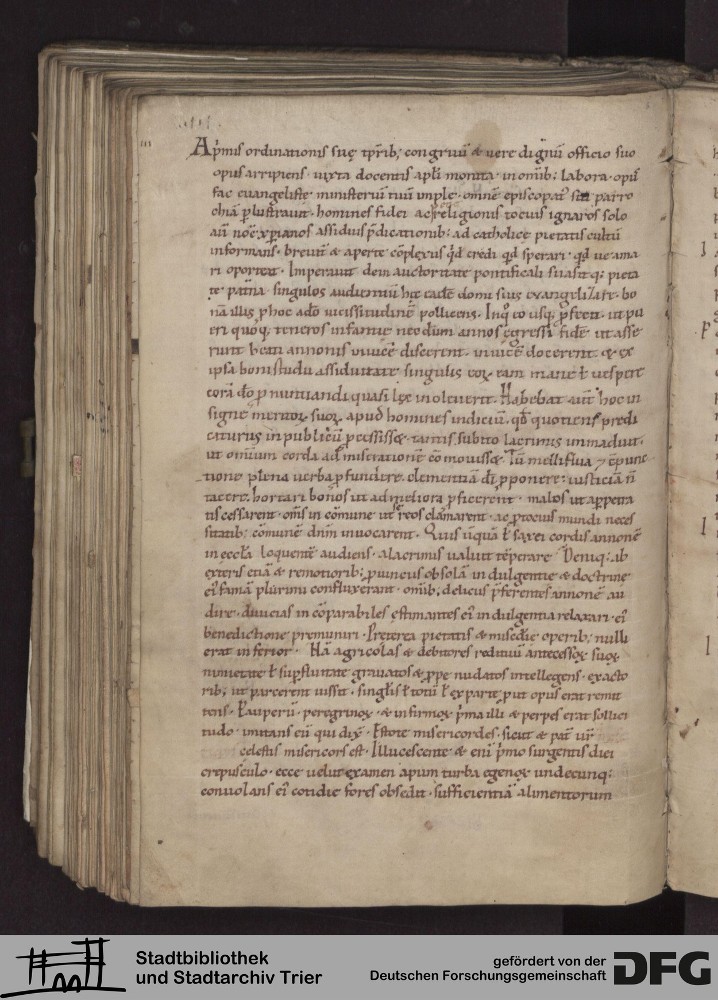 .III.
A p̄mis ordinationis suę tp̄rib; congruū & uere dignū officio suo
opus arripiens. iuxta docentis apl̄i monita. in om̄ib; labora. opus
fac euangelistę. ministeriū tuū imple. omnē episcopat' sui parro
chiā plustrauit. homines fidei ac religionis totius ignaros solo
aut noīe xp̄ianos assiduis p̄dicationib; ad catholicę pietatis cultū
informans. breuit̄ & aperte cōplexus qđ credi qđ sperari. qđ ue ama
ri oporteat. Imperauit dein auctoritate pontificali suasitq; pieta
te pat̄na singulos audientiū hęc eadē domi suis euangelizare. bo
nā illis p hoc ado uicissitudinē pollicens. Inq̄ eo usq; pfecit. ut pu
eri quoq; teneros infantię necdum annos egressi fidē ut asse
runt beati annonis uiuicē discerent. inuicē docerent. & ex
ipsa boni studii assiduitate singulis eoꝝ. eam mane ł uespere
corā do pnuntiandi quasi lęx inoleuerit. Habebat aut hoc in
signe meritoꝝ suoꝝ. apud homines indiciū. qđ quotiens predi
caturus in publicū pcessisset. tantis subito lacrimis immaduit.
ut omnium corda ad miserationē cōmouisset. Tū melliflua & cōpunc
tione plena uerba pfundere. clementiā dī pponere. iusticiā ñ
tacere. hortari bonos ut ad meliora pficerent. malos ut a ppetra
tis cessarent. om̄s in cōmune ut reos clamarent. ac p totius mundi neces
sitatib; cōmunē dn̄m inuocarent. Quis uñquā ł saxei cordis annonē
in eccl̄a loquentē audiens. a lacrimis ualuit tēperare. Deniq; ab
exteris etiā & remotiorib; puinciis ob solā indulgentię & doctrinę
ei' famā plurimi confluxerant. om̄ib; deliciis pferentes annonē au
dire. diuicias incōparabiles ęstimantes ei' indulgentia relaxari. ei'
benedictione premuniri. Pręterea pietatis & misc̄die operib; nulli
erat inferior. Nā agricolas & debitores redituū antecessoꝝ suoꝝ
nimietate ł supfluitate grauatos & ppe nudatos intellegens. exacto
rib; ut parcerent iussit. singulis ł totū ł ex parte put opus erat remit
tens. Pauperū. peregrinoꝝ. & infirmoꝝ p̄ma illi & perpes erat sollici
tudo. imitans eū qui dix̄. Estote misericordes. sicut & pat̄ ur̄
celestis misericors est. Illucescente & eni p̄mo surgentis diei
crepusculo. ecce uelut examen apium turba egenoꝝ undecunq;
conuolans ei' cotidie fores obsedit. sufficientiā alimentorum
Stadtbibliothek
und Stadtarchiv Trier
gefördert von der
Deutschen Forschungsgemeinschaft
DFG